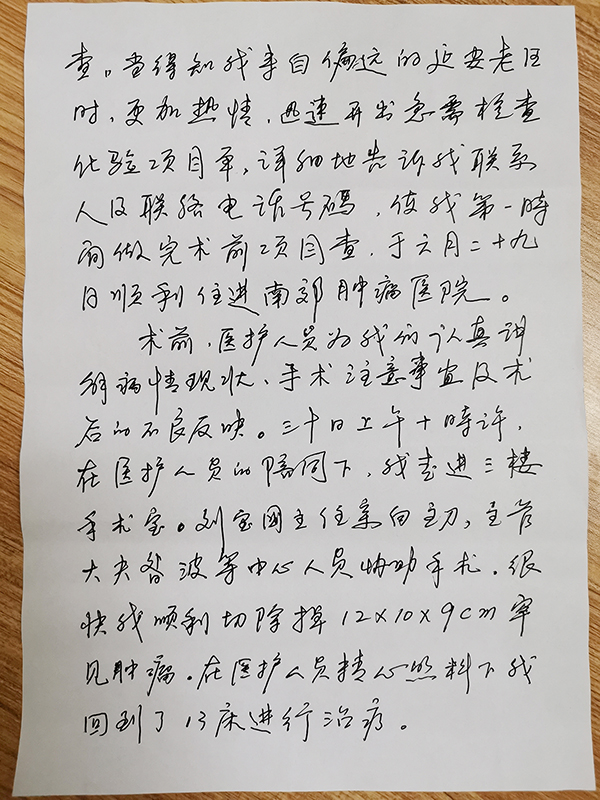 查。当得知我来自偏远的延安老区
时,更加热情,迅速开出急需检查
化验项目单,详细地告诉我联系
人及联络电话号码,使我第一時
间做完术前项目查,于六月二十九
日顺利住进南郊肿瘤医院。
术前,医护人员为我们认真讲
解病情现状、手术注意事宜及术
后的不良反映。三十日上午十時许,
在医护人员的陪同下,我走进三楼
手术室。刘宝国主任亲自主刀,主管
大夫昝波等中心人员协助手术。很
快我顺利切除掉12×10×9cm罕
见肿瘤。在医护人员精心照料下我
回到了13床进行治疗。